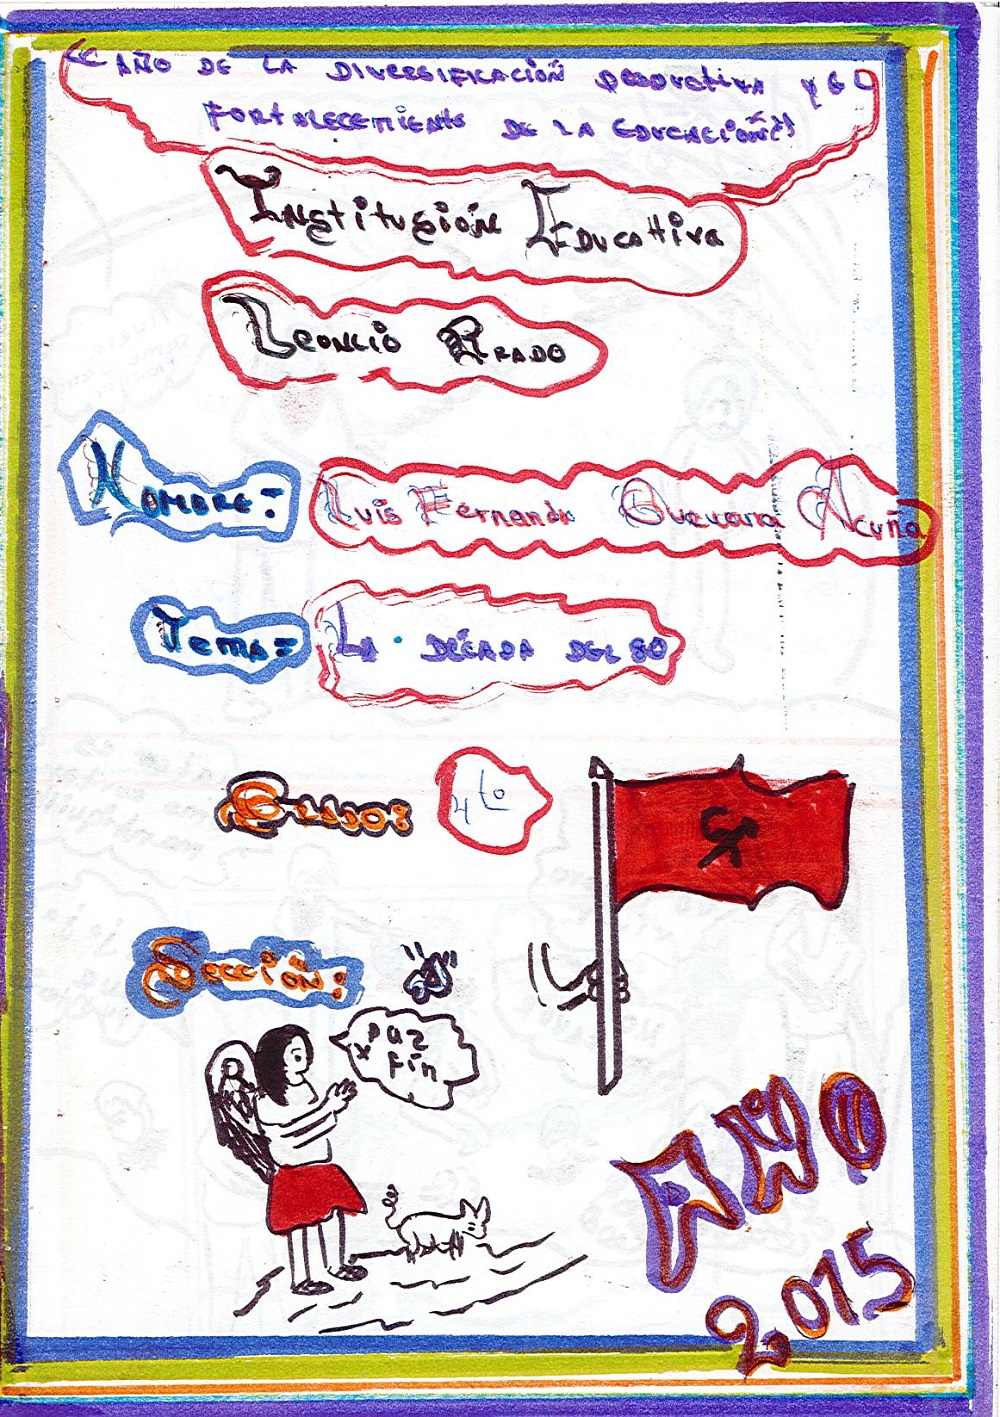 "AÑO DE LA DIVERSIFICACIÓN PRODUCTIVA Y EL
FORTALECEMIENTO DE LA EDUCACIÓN"
INSTITUSIÓN EDUCATIVA
LEONCIO PRADO
NOMBRE: Luis Fernando Guevara Acuña
TEMA: LA DÉCADA DEL 80
GRADO: 4to
SECCIÓN:
Paz
x fin
AÑO
2015